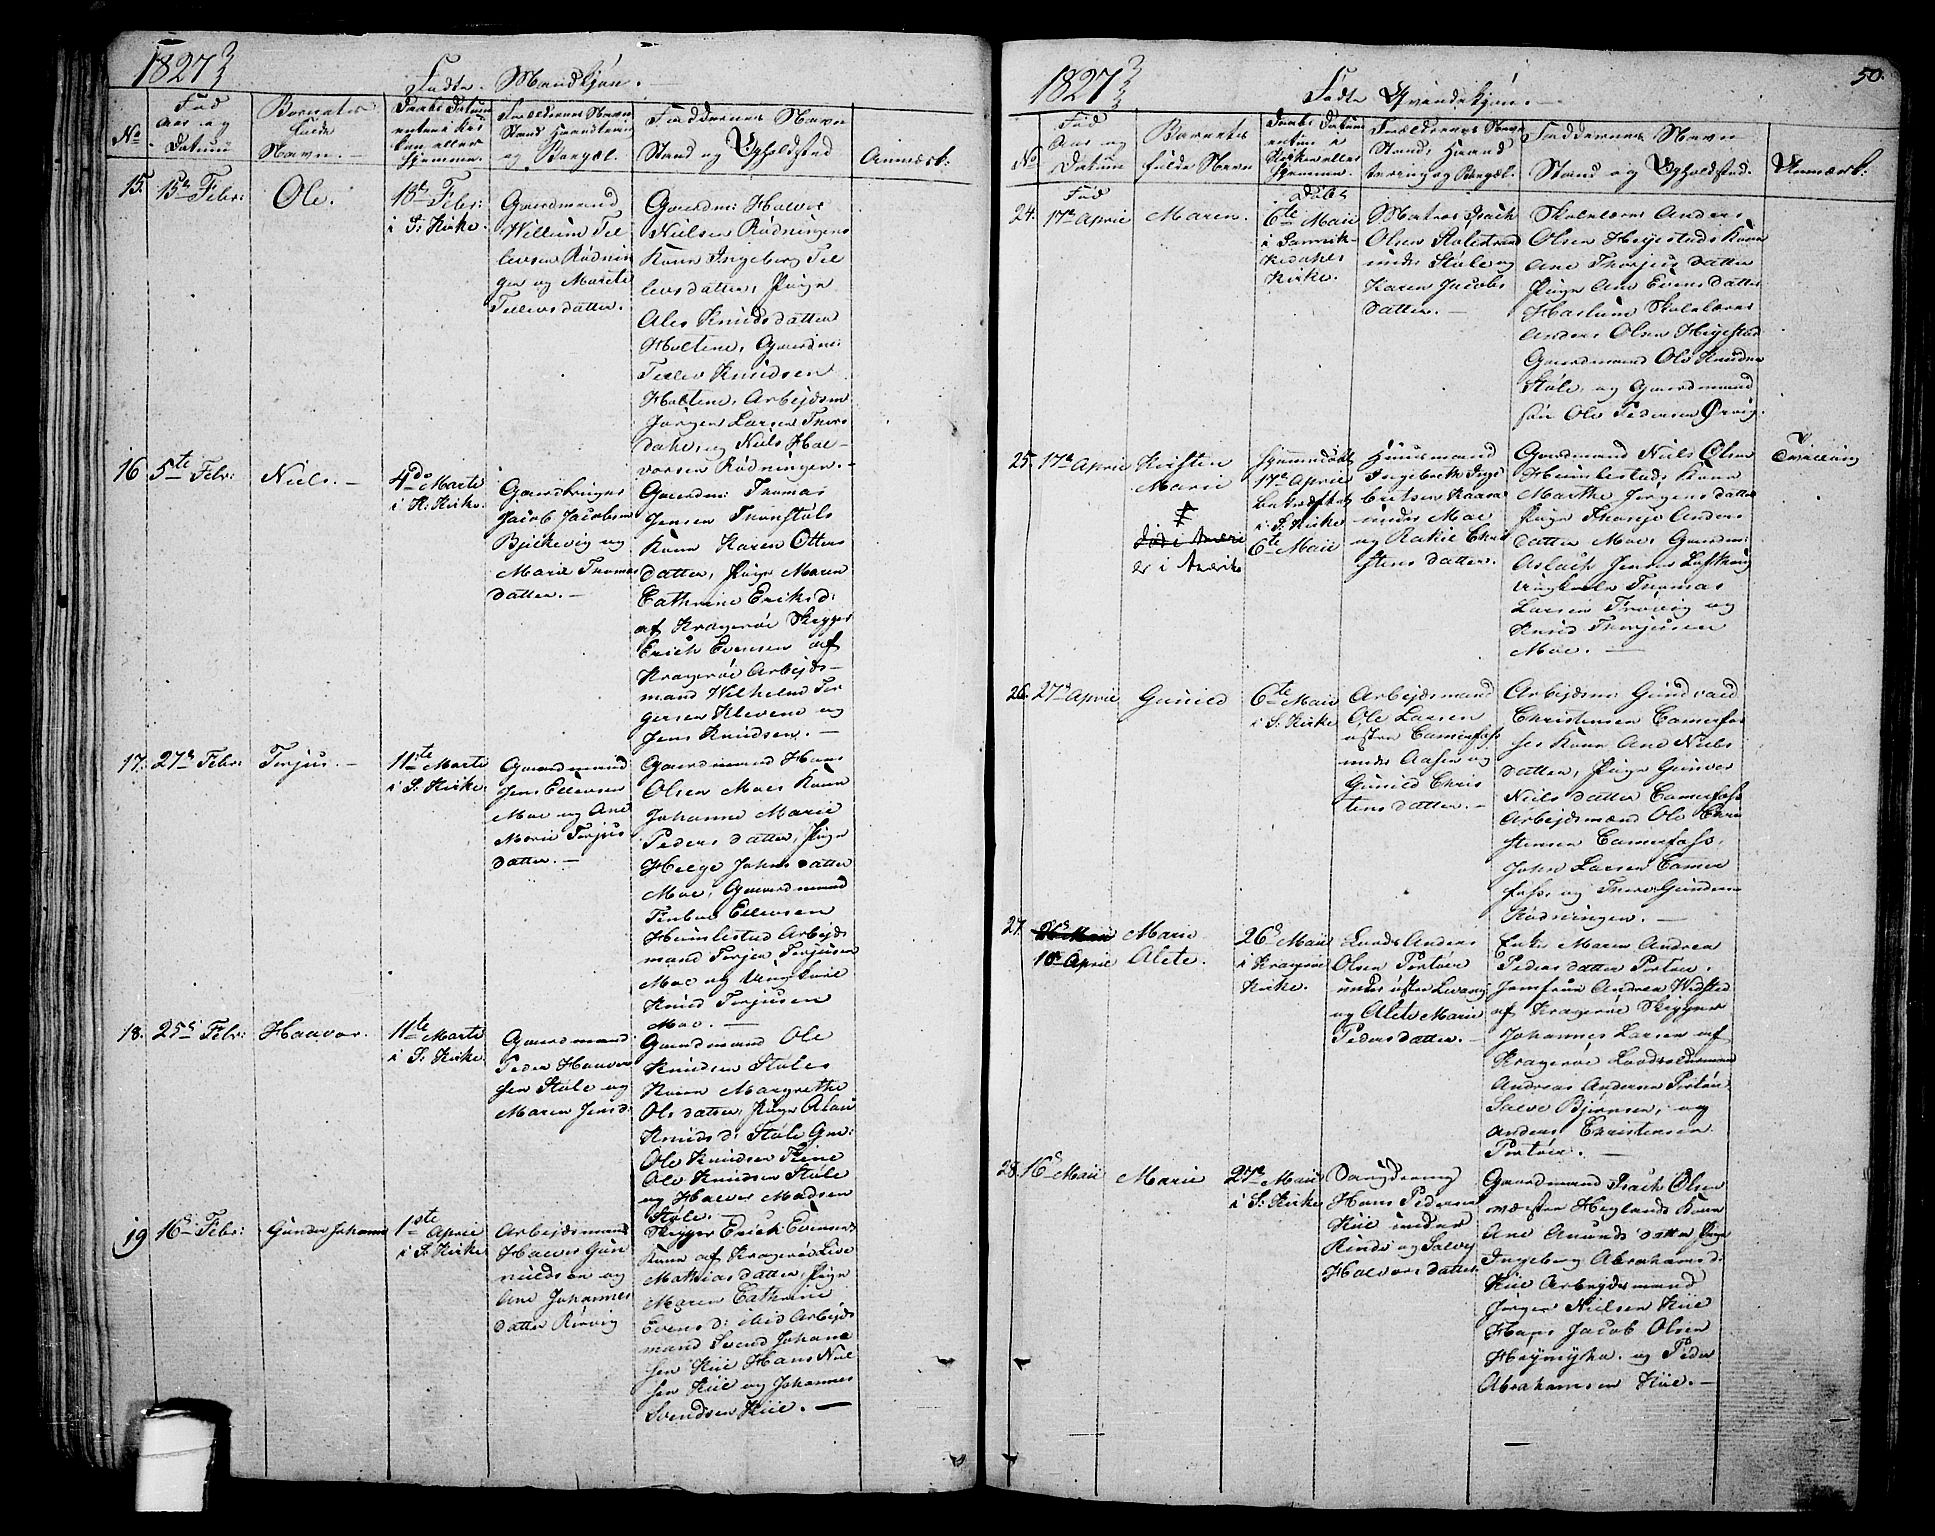 1827
Fødte Mandkjøn.
No
Fød
Aar og
Datum
Barnets
fulde
Navn.
Daabs Datum
enten i Kir
ken eller
hjemme.
Forældrenes Navn
Stand Haandtering
og Borgæl.
Faddernes Navn
Stand og Opholdsted
Anmærk:
15.
15de Febr:
Ole.
18de Febr:
i S: Kirke.
Gaardmand
Willum Tel
levsen Rødnin
gen og Marite
Tellevsdatter.
Gaardm: Halvor
Nielsen Rødningens
Kone Ingeborg Tel
levsdatter, Pige
Ales Knudsdatter
Holtene, Gaardm:
Tellev Knudsen
Holtene, Arbejdsm
Jørgen Larsen Thors
dahl, og Niels Hal-
vorsen Rødningen.-
16
5te Febr:
Niels.-
4de Marts
i H: Kirke.
Gaardbruger
Jacob Jacobsen
Bjerkevig og
Marie Thomas
datter.-
Gaardm: Thomas
Jensen Tronstøls
Kone Karen Otters
datter, Pige Maren
Cathrine Eriksd:
af Kragerøe Skipper
Erich Evensen af
Kragerøe Arbejds-
mand Wilhelm Tor
gersen Klevene og
Jens Knudsen.-
17.
27de Febr:
Torjus.-
11te Marts
i S: Kirke
Gaardmand
Jens Ellevsen
Moe og Ane
Marie Torjus
datter.-
Gaardmand Hans
Olsen Moes Kone
Johanne Marie
Pedersdatter, Pige
Helge Johnsdatter
Moe, Gaardmand
Tinboe Ellevsen
Humlestad Arbejds
mand Torjer Torjusen
Moe og Ungkarl
Knud Torjusen
Moe.-
18.
25de Febr:
Haavor.
11te Marts
i S: Kirke
Gaardmand
Peder Haavor
sen Støle og
Maren Jensd:
Gaardmand Ole
Knudsen Støles
Kone Margrethe
Olsdatter, Pige
Knudsd: Støle Gm:
Ole Knudsen Tiene
Ole Knudsen Støle
og Halvor Madsen
Støle.-
19
16de Febr:
Gunder Johann
1ste
Aprie
i S: Kirke
Arbejdsmand
Halvor Gun
nuldsen og
Ane Johannes
datter Rørvig
Skipper Erich Evensens
Kone af Kragerøe Live
Mathiasdatter, Pige
Maren Cathrine
Evensd: ibid Arbejds
mand Svend Johann
sen Kiil Hans Niel
sen Kiil og Johannes
Svendsen Kiil.-
1827
50.
Fødte Qvindekjøn.-
No
Fød
Aar og
Datum
Barnets
fulde Navn
Daabs Datum
enten i
Kirke eller
hjemme.
Forældrenes Navn
Stand, Haand
tering og Borgæl.
Faddernes Navn
Stand og Opholdsted.
Anmærk:
Fød
Døbt
24.
17de Aprie
Maren.
6te Maii
i Sannik-
kedahls
Kirke.
Matros Isach
Olsen Stølestrand
under Støle og
Karen Jacobs
datter.-
Skolelærer Anders
Olsen Heyestads Kone
Ane Thorjusdatter
Pige Ane Evensdatter
Haslum Skolelærer
Anders Olsen Heyestad
Gaardmand Ole Knudsen
Støle, og Gaardmand
søn Ole Pedersen Ørvig.
25.
17de Aprie
Kirsten
Marie
er i Amerika
Hjemmedøbt
17de Aprie
bekræftet
i S: Kirke
6te Maii
Huusmand
Ingebreth Inge
bretsen Kaasa
under Moe
og Rakil Chris
tensdatter.
Gaardmand Niels Olsen
Humlestads Kone
Marthe Jørgensdatter
Pige Thorsje Anders
datter Moe, Gaardm:
Aslach Jensen Lofthaug
ungkarl Thomas
Larsen Trosvig og
Knud Thorjussen
Moe.-
Tvilling
26.
27de Aprie
Gunild
6te Maii
i S: Kirke
Arbejdsmand
Ole Larsen
østre Camerfoss
under Aasen og
Gunild Chris
tensdatter.-
Arbejdsm: Gundvald
Christensen Camerfos
ses Kone Ane Niels
datter, Pige Gunvor
Nielsdatter Camerfoss
Arbejdsmænd Ole Chri
stensen Camerfoss,
John Larsen Camer
foss, og Thore Gundersen
Rødningen.-
27.
26de Maii
10de Aprie
Maren
Alete.
26de Maii
i Kragerøe
Kirke.
Loods Anders
Olsen Portøer
under østre Levang
og Alete Marie
Pedersdatter.-
Enke Maren Andrea
Pedersdatter Portøer,
Jomfrue Andrea Widsted
af Kragerøe Skipper
Johannes Larsen af
Kragerøe Loodsolderman
Andreas Andersen Portøer
Salve Bjørnsen, og
Anders Christensen
Portøer.-
28.
16de Maii
Marie
27de Maii
i S: Kirke
Hans Pedersen
Kiil under
Rinde og Salvej
Halvorsdatter
Gaardmand Isach Olsen
væstre Heglands Kone
Ane Amundsdatter Pige
Ingeborg Abrahamsd:
Kiil Arbejdsmand
Jørgen Nielsen Kiil
Hans Jacob Olsen
Heymyhr. og Peder
Abrahamsen Kiil.-